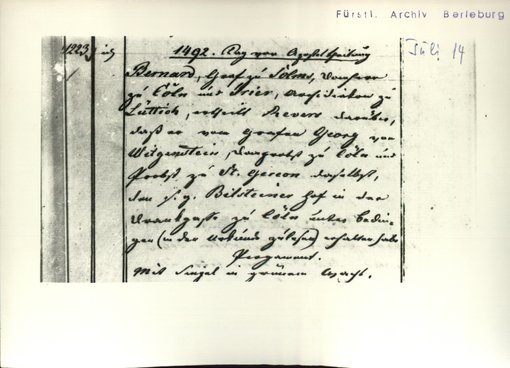 Fürstl. Archiv Berleburg
Juli 14
1223
1492. Tag von Apostelteilung
Bernard, Graf zu Solms, Domherr
zu Cöln und Trier, Archidiakon zu
Lüttich, ertheilt Revers darüber,
daß er vom Grafen Georg von
Witgenstein, Domprobst zu Cöln und
Probst zu St. Gereon daselbst,
den s. g. Bilsteiner Hof in der
zu Cöln unter Bedin-
gen (in der Urkunde zu lesen) erhalten habe
Pergament.
Mit Siegel in grünem Wachs.